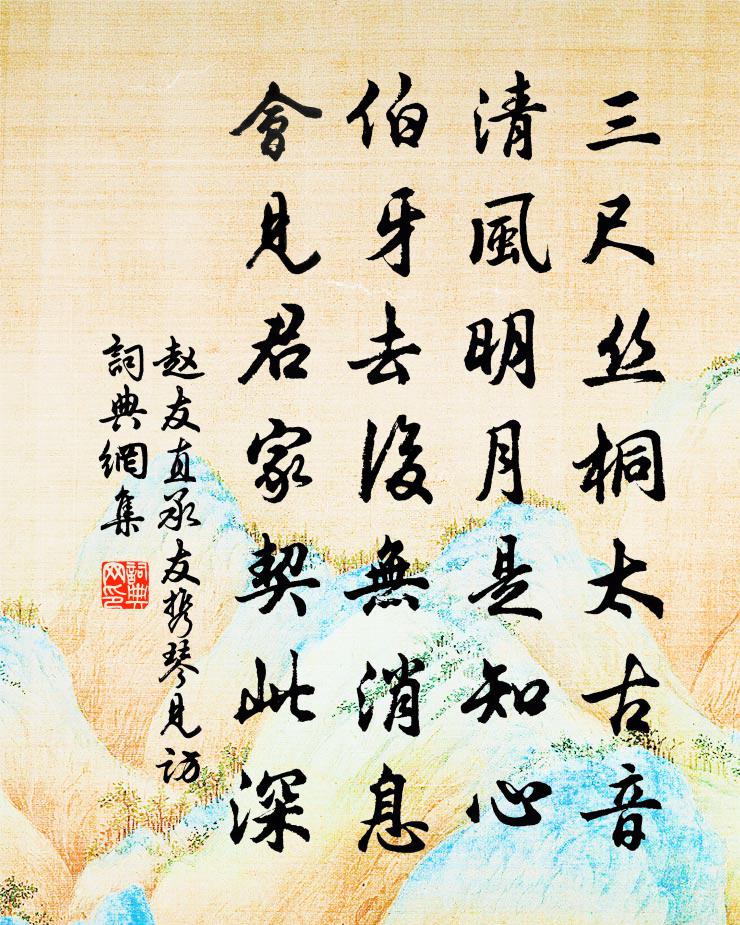 三尺丝桐太古音
清風明月是知心
伯牙去後無消息
會見君家契此深
赵友直承友携琴見訪
詞典網集
詞典
网印